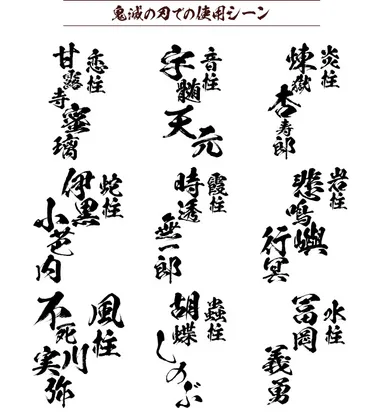 鬼滅の刃での使用シーン
炎柱
煉獄
杏寿郎
音柱
宇髄
天元
恋柱
甘露寺
蜜璃
岩柱
悲鳴嶼
行冥
霞柱
時透
無一郎
蛇柱
伊黒
小芭内
水柱
冨岡
義勇
蟲柱
胡蝶
しのぶ
風柱
不死川
実弥